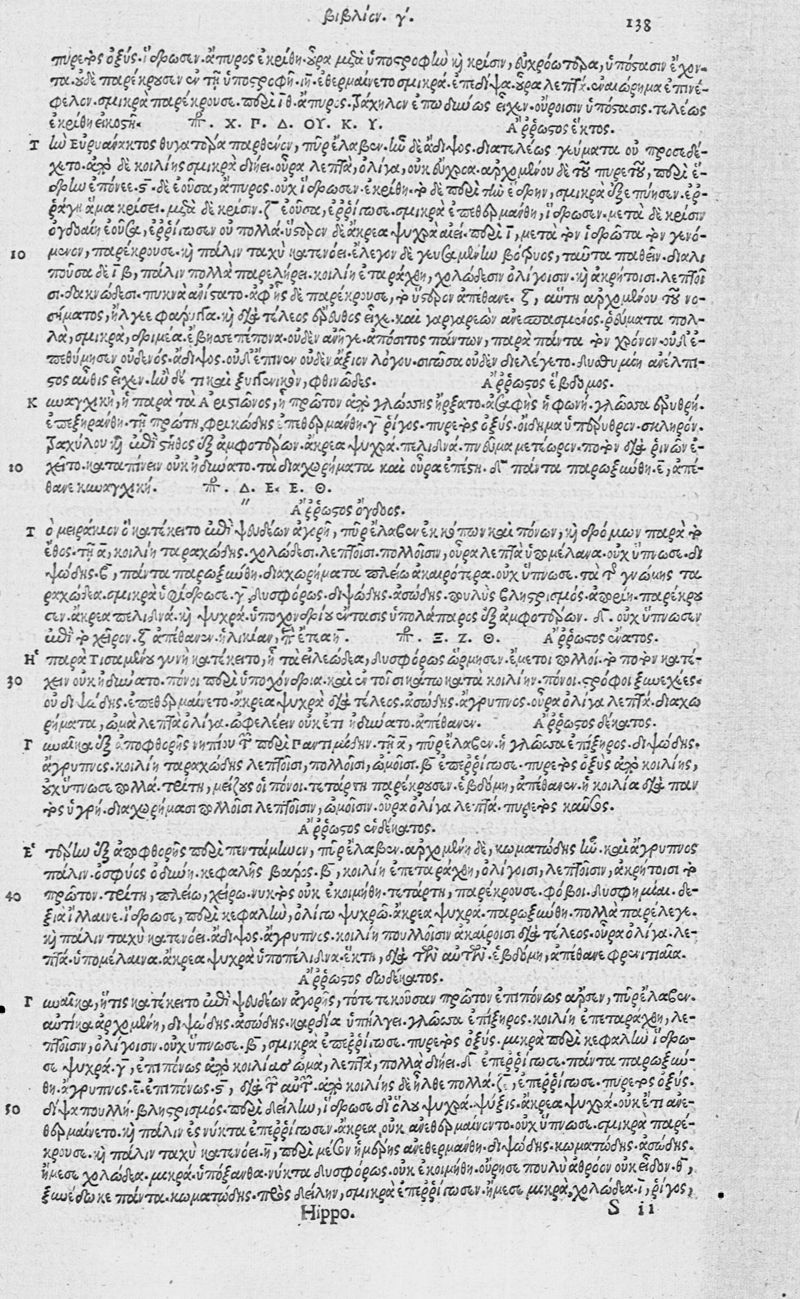 βιβλίον. γ΄. 138
πυρετὸς ὀξύς. ἵδρωσεν. ἄπυρος ἐκρίθη. οὖρα μετὰ ὑποστροφὴν καὶ κρίσιν, εὐχροώτερα, ὑπόστασιν ἔχον-
τα. οὐδὲ παρέκρουσεν ἐν τῇ ὑποστροφῇ. ιη. ἐθερμαίνετο σμικρά. ἐπεδίψα. οὖρα λεπτά. ἐναιώρημα ἐπινέ-
φελον. σμικρὰ παρέκρουσε. περὶ ιθ. ἄπυρος. τράχηλον ἐπωδύνως εἶχεν. οὔροισιν ὑπόστασις. τελέως
ἐκρίθη εἰκοστῇ. Χ. Γ. Δ. ΟΥ. Κ. Υ. Ἄῤῥωστος ἕκτος.
Τὴν Εὐρυάνακτος θυγατέρα παρθένον, πῦρ ἔλαβεν. ἦν δὲ ἄδιψος. διατελέως γεύματα οὐ προσεδέ-
χετο. ἀπὸ δὲ κοιλίης σμικρὰ διῄει. οὖρα λεπτὰ, ὀλίγα, οὐκ εὔχροα. ἀρχομένου δὲ τοῦ πυρετοῦ, περὶ ἕ-
δρην ἐπόνεε. ϛ. δὲ ἐοῦσα, ἄπυρος. οὐχ ἵδρωσεν. ἐκρίθη. τὸ δὲ περὶ τὴν ἕδρην, σμικρὰ ἐξεπύησεν. ἐῤ-
ῥάγη ἅμα κρίσει. μετὰ δὲ κρίσιν. ζ ἐοῦσα, ἐῤῥίγωσε. σμικρὰ ἐπεθερμάνθη, ἵδρωσεν. μετὰ δὲ κρίσιν
ὀγδοαίη ἐοῦσα, ἐῤῥίγωσεν οὐ πολλά. ὕστερον δὲ ἄκρεα ψυχρὰ αἰεί. περὶ ι, μετὰ τὸν ἱδρῶτα τὸν γενό-
10 μενον, παρέκρουσε. καὶ πάλιν ταχὺ κατενόει. ἔλεγον δὲ γευσαμένην βότρυος, ταῦτα παθεῖν. διαλι
ποῦσα δὲ ιβ, πάλιν πολλὰ παρελήρει. κοιλίη ἐταράχθη, χολώδεσιν ὀλίγοισιν. καὶ ἀκρήτοισι. λεπτοῖ
σι. δακνώδεσι. πυκνὰ ἀνίστατο. ἀφ' ἧς δὲ παρέκρουσε, τὸ ὕστερον ἀπέθανε. ζ, αὕτη ἀρχομένου τοῦ νο-
σήματος, ἤλγεε φάρυγγα. καὶ διὰ τέλεος ἔρευθος εἶχε. καὶ γαργαρεὼν ἀνεσπασμένος. ῥεύματα πολ-
λὰ, σμικρὰ, δριμέα. ἔβησσε πέπονα. οὐδὲν ἀνῆγε. ἀπόσιτος πάντων, παρὰ πάντα τὸν χρόνον. οὐδ' ἐ-
πεθύμησεν οὐδενός. ἄδιψος. οὐδ' ἔπινεν οὐδὲν ἄξιον λόγου. σιγῶσα οὐδὲν διελέγετο. δυσθυμίη. ἀνέλπι-
στος αὑτῆς εἶχεν. ἦν δέ τι καὶ ξυγγενικὸν, φθινῶδες. Ἄῤῥωστος ἕβδομος.
Κυναγχικὴ, ἡ παρὰ τὰ Ἀριστίωνος, ἣ πρῶτον ἀπὸ γλώσσης ἤρξατο. ἀσαφὴς ἡ φωνή. γλῶσσα ἐρυθρή.
ἐπεξηράνθη. τῇ πρώτῃ, φρικώδης ἐπεθερμάνθη. γ ῥῖγος. πυρετὸς ὀξύς. οἴδημα ὑπέρυθρον. σκληρόν.
τραχήλου καὶ ἐπὶ στῆθος ἐξ ἀμφοτέρων. ἄκρεα ψυχρά. πελιδνά. πνεῦμα μετέωρον. ποτὸν διὰ ῥινῶν ἐ-
10 χεῖτο. καταπίνειν οὐκ ἠδύνατο. τὰ διαχωρήματα καὶ οὖρα ἐπέστη. δ πάντα παρωξύνθη. ε, ἀπέ-
θανε κυναγχική. Δ. Ε. Ε. Θ.
Ἄῤῥωστος ὄγδοος.
Τὸ μειράκιον ὃ κατέκειτο ἐπὶ ψευδέων ἀγορῇ, πῦρ ἔλαβεν ἐκ κόπων καὶ πόνων, καὶ δρόμων παρὰ τὸ
ἔθος. τῇ α, κοιλίη ταραχώδης. χολώδεσι. λεπτοῖσι. πολλοῖσιν, οὖρα λεπτὰ ὑπομέλανα. οὐχ ὕπνωσε. δι
ψώδης. β, πάντα παρωξύνθη. διαχωρήματα πλείω ἀκαιρότερα. οὐχ ὕπνωσε. τὰ τῆς γνώμης τα
ραχώδεα. σμικρὰ ὑφίδρωσε. γ, δυσφόρως. διψώδης. ἀσώδης. πουλὺς βληστρισμός. ἀπορίη. παρέκρου
σεν. ἄκρεα πελιδνὰ. καὶ ψυχρά. ὑποχονδρίου ἔντασις ὑπολάπαρος ἐξ ἀμφοτέρων. δ. οὐχ ὕπνωσεν
ἐπὶ τὸ χεῖρον. ζ ἀπέθανεν ἡλικίαν, περὶ ἔτεα κ. Ξ. Ζ. Θ. Ἄῤῥωστος ἔνατος.
Ἡ παρὰ Τισαμένου γυνὴ κατέκειτο, ᾗ τὰ εἰλεώδεα, δυσφόρως ὥρμησεν. ἔμετοι πολλοί. τὸ ποτὸν κατέ-
30 χειν οὐκ ἠδύνατο. πόνοι περὶ ὑποχόνδρια. καὶ ἐν τοῖσι κάτω κατὰ κοιλίην. πόνοι. στρόφοι ξυνεχέες.
οὐ διψώδης. ἐπεθερμαίνετο. ἄκρεα ψυχρὰ διὰ τέλεος. ἀσώδης. ἄγρυπνος. οὖρα ὀλίγα λεπτά. διαχω
ρήματα, ὠμὰ λεπτὰ ὀλίγα. ὠφελέειν οὐκ ἔτι ἠδύνατο. ἀπέθανεν. Ἄῤῥωστος δέκατος.
Γυναῖκα ἐξ ἀποφθορῆς νηπίου τῶν περὶ Παντιμίδην. τῇ α, πῦρ ἔλαβεν. ἡ γλῶσσα ἐπίξηρος. διψώδης.
ἄγρυπνος. κοιλίη ταραχώδης λεπτοῖσι, πολλοῖσι, ὠμοῖσι. β ἐπεῤῥίγωσε. πυρετὸς ὀξὺς ἀπὸ κοιλίης,
οὐχ ὕπνωσε πολλά. τρίτῃ, μείζους οἱ πόνοι. τετάρτῃ παρέκρουσεν. ἑβδόμῃ, ἀπέθανεν. ἡ κοιλία διὰ παν
τὸς ὑγρή. διαχωρήμασι πολλοῖσι λεπτοῖσιν, ὠμοῖσιν. οὖρα ὀλίγα λεπτά. πυρετὸς καῦσος.
Ἄῤῥωστος ἑνδέκατος.
Ἑτέρην ἐξ ἀποφθορῆς περὶ πεντάμηνον, πῦρ ἔλαβεν. ἀρχομένη δὲ, κωματώδης ἦν. καὶ ἄγρυπνος
πάλιν. ὀσφύος ὀδύνη. κεφαλῆς βάρος. β, κοιλίη ἐπεταράχθη, ὀλίγοισι, λεπτοῖσιν, ἀκρήτοισι τὸ
40 πρῶτον. τρίτῃ, πλείω, χείρω. νυκτὸς οὐκ ἐκοιμήθη. τετάρτῃ, παρέκρουσε. φόβοι. δυσθυμίαι. δε-
ξιᾷ ἴλλαινε. ἵδρωσε, περὶ κεφαλὴν, ὀλίγῳ ψυχρῷ. ἄκρεα ψυχρά. παρωξύνθη. πολλὰ παρέλεγε.
καὶ πάλιν ταχὺ κατενόει. ἄδιψος. ἄγρυπνος. κοιλίη πουλλοῖσιν ἀκαίροισι διὰ τέλεος. οὖρα ὀλίγα. λε-
πτά. ὑπομέλαινα. ἄκρεα ψυχρὰ ὑποπέλιδνα. ἕκτῃ, διὰ τῶν αὐτῶν. ἑβδόμῃ, ἀπέθανε φρενιτιαῖα.
Ἄῤῥωστος δωδέκατος.
Γυναῖκα, ἥτις κατέκειτο ἐπὶ ψευδέων ἀγορῆς, τότε τεκοῦσαν πρῶτον ἐπιπόνως ἄρσεν, πῦρ ἔλαβεν.
αὐτίκα ἀρχομένη, διψώδης. ἀσώδης. καρδία ὑπήλγει. γλῶσσα ἐπίξηρος. κοιλίη ἐπεταράχθη, λε-
πτοῖσιν, ὀλίγοισιν. οὐχ ὕπνωσε. β, σμικρὰ ἐπεῤῥίγωσε. πυρετὸς ὀξύς. μικρὰ περὶ κεφαλὴν ἵδρω-
σε ψυχρά. γ, ἐπιπόνως ἀπὸ κοιλίας ὠμὰ, λεπτὰ, πολλὰ διῄει. δ ἐπεῤῥίγωσε. πάντα παρωξύν-
θη. ἄγρυπνος. ε. ἐπιπόνως. ϛ, διὰ τῶν αὐτῶν. ἀπὸ κοιλίης δὲ ἦλθε πολλά. ζ, ἐπεῤῥίγωσε. πυρετὸς ὀξύς.
50 δίψα πουλλή. βληστρισμός. περὶ δείλην, ἵδρωσε δι' ὅλου ψυχρά. ψύξις. ἄκρεα ψυχρά. οὐκ ἔτι ἀνε-
θερμαίνετο. καὶ πάλιν ἐς νύκτα ἐπεῤῥίγωσεν. ἄκρεα, οὐκ ἀνεθερμαίνοντο. οὐχ ὕπνωσε. σμικρὰ παρέ-
κρουσε. καὶ πάλιν ταχὺ κατενόει. η, περὶ μέσον ἡμέρης ἀνεθερμάνθη. διψώδης. κωματώδης. ἀσώδης.
ἤμεσε χολώδεα. μικρὰ. ὑπόξανθα. νύκτα δυσφόρως. οὐκ ἐκοιμήθη. οὔρησε πουλὺ ἀθρόον οὐκ εἰδυῖα. θ,
ξυνέδωκε πάντα. κωματώδης. πρὸς δείλην, σμικρὰ ἐπεῤῥίγωσεν. ἤμεσε μικρὰ, χολώδεα. ι, ῥῖγος,
Hippo. S ii